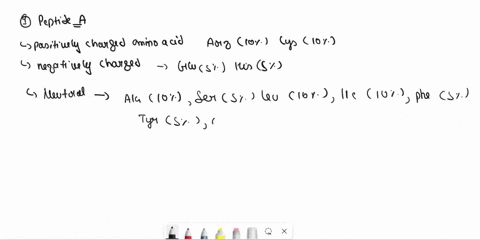 ① Peptide_A
↳ positively charged amino acid Arg (10%) Lys (10%)
↳ negatively charged → Glu (5%) His (5%)
↳ Neutral → Ala (10%), Ser (5%) Leu (10%), Ile (10%), phe (5%)
Tyr (5%), (